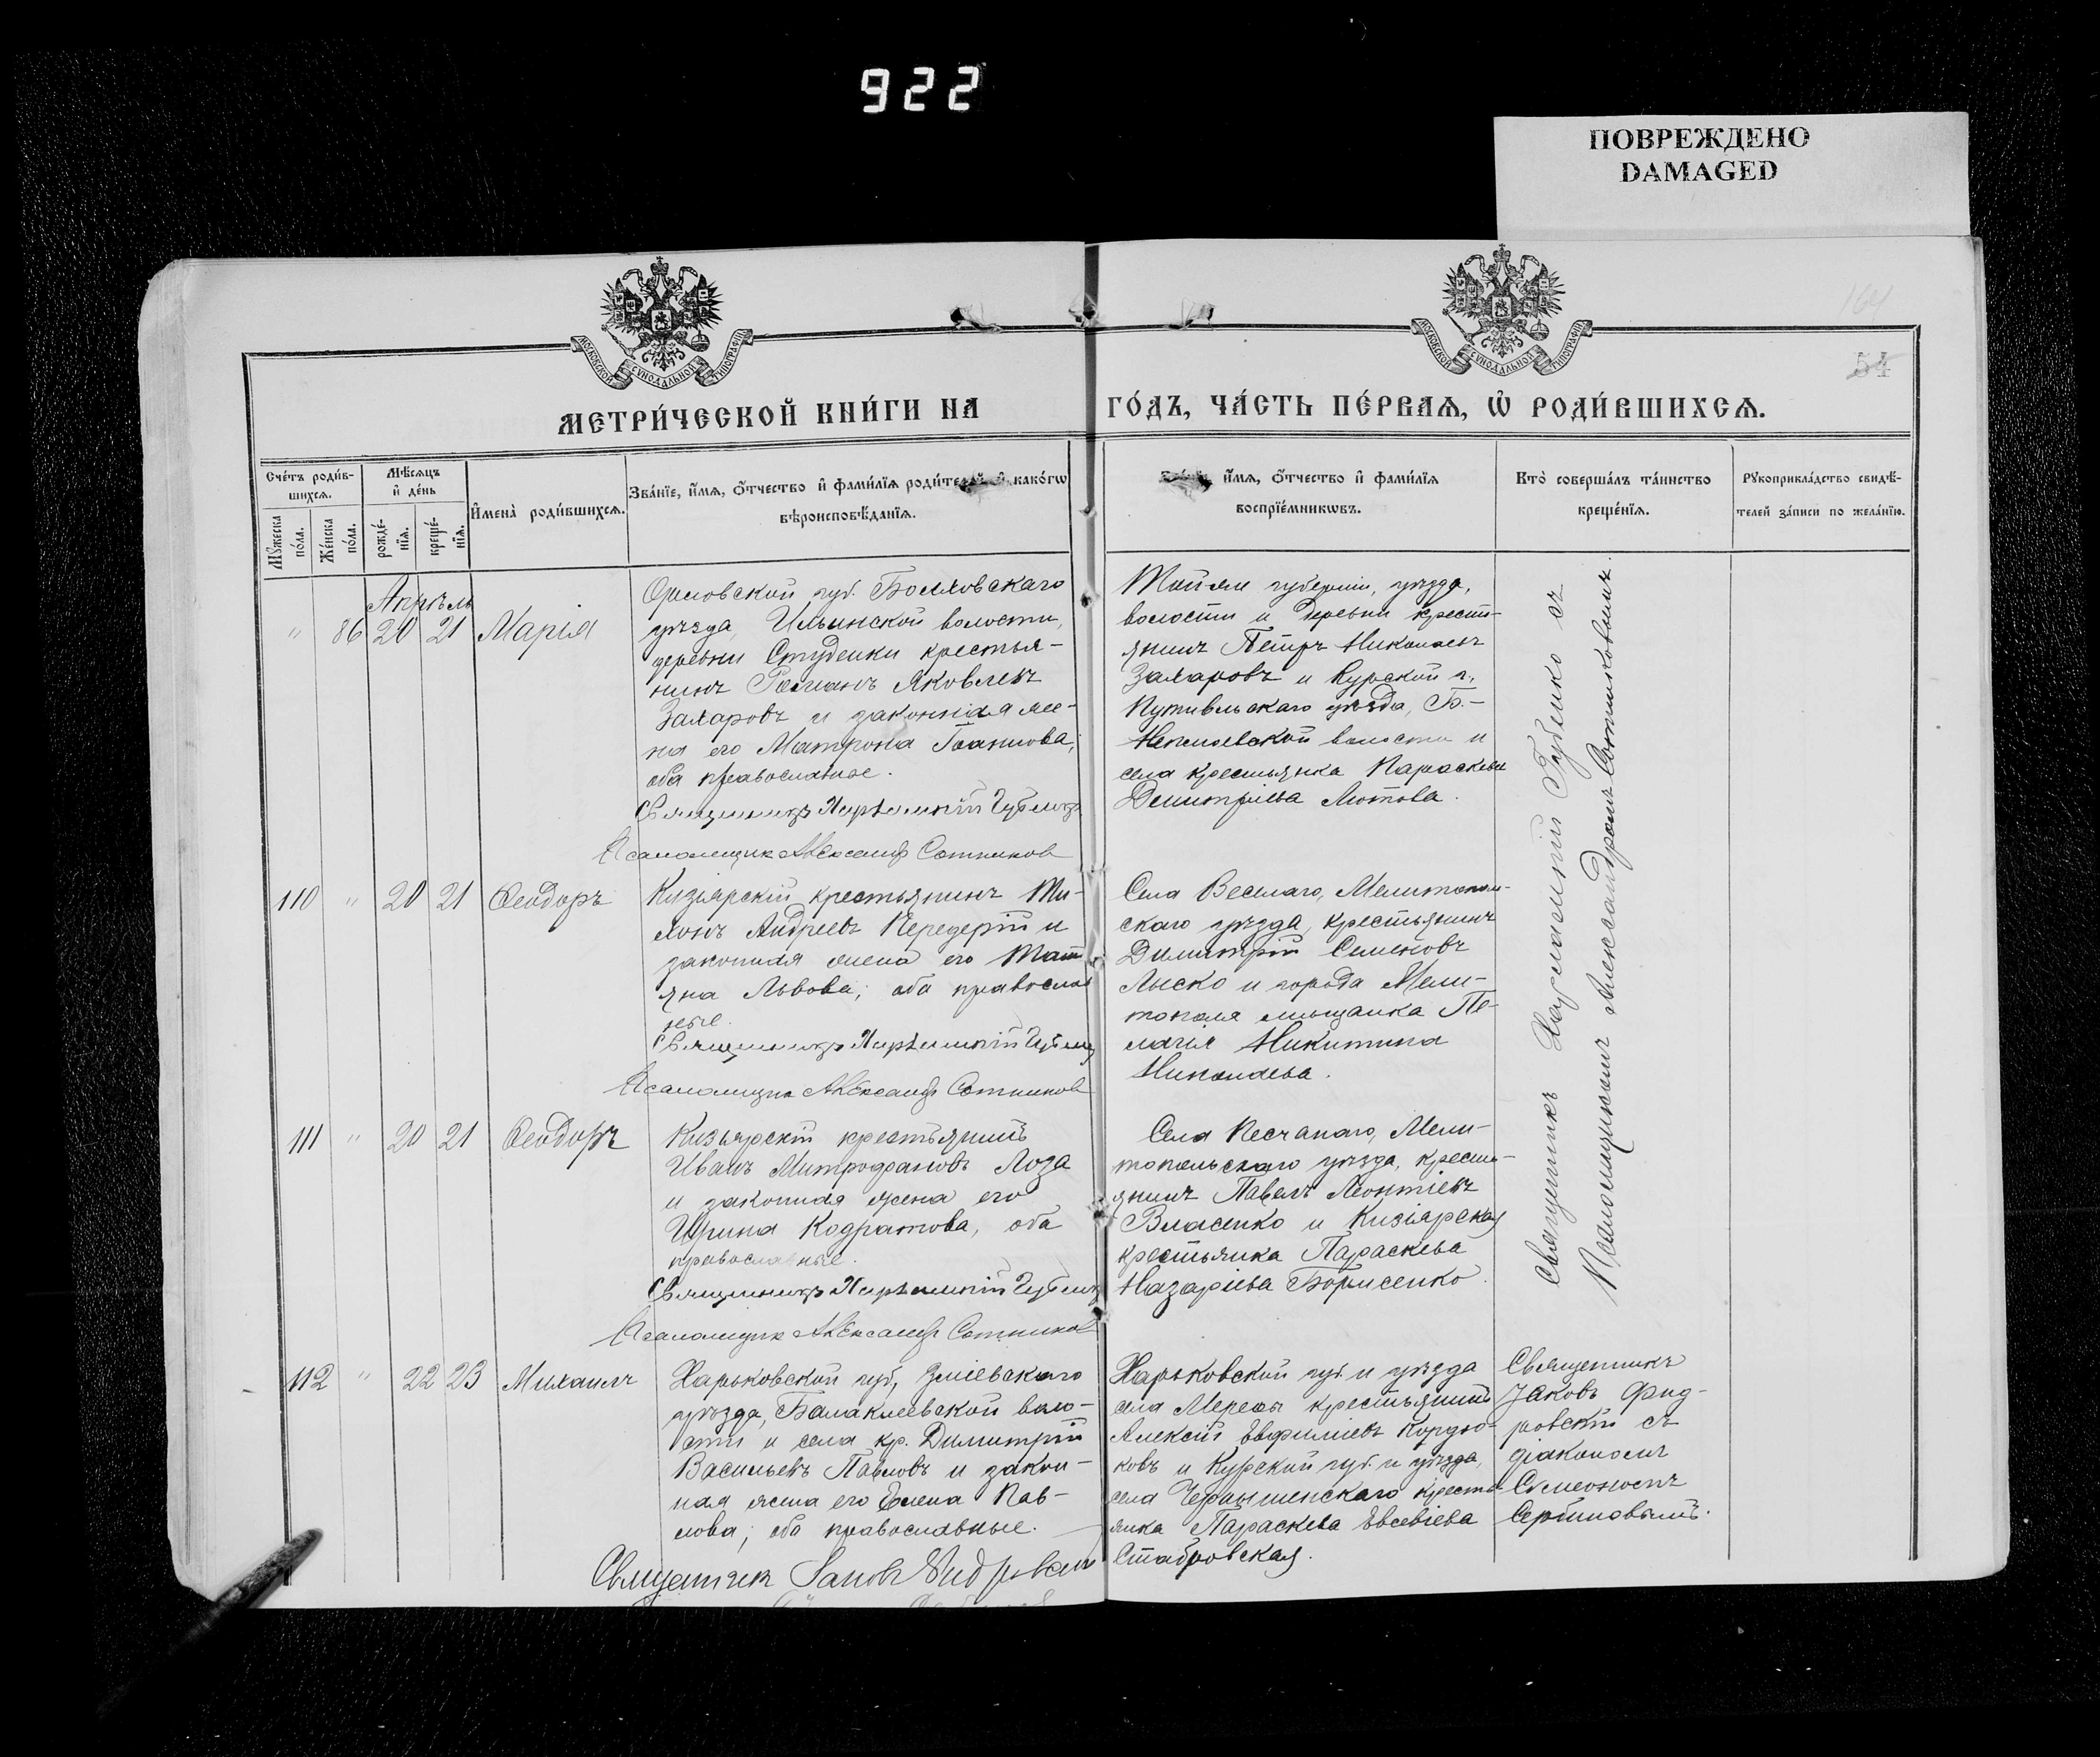 922
ПОВРЕЖДЕНО
DAMAGED
МОСКОВСКОЙ СУНОДАЛЬНОЙ ТИПОГРАФІИ
МОСКОВСКОЙ СУНОДАЛЬНОЙ ТИПОГРАФІИ
164
54
МЕТРИ́ЧЕСКОЙ КНИ́ГИ НА ГО́ДЪ, ЧА́СТЬ ПЕ́РВАѦ, Ѡ҆ РОДИ́ВШИХСѦ.
Сче́тъ роди́в-
шихсѧ.
Мꙋ́жеска по́ла.
Же́нска по́ла.
Мѣ́сѧцъ
и҆ де́нь
рожде́-
нїѧ.
креще́-
нїѧ.
И҆мена̀ роди́вшихсѧ.
Зва́нїе, и҆́мѧ, ѻ҆́тчество и҆ фами́лїѧ роди́телей, и҆ како́гѡ
вѣроисповѣ́данїѧ.
и҆́мѧ, ѻ҆́тчество и҆ фами́лїѧ
воспрїе́мникѡвъ.
Кто̀ соверша́лъ та́инство
креще́нїѧ.
Рꙋкоприкла́дство свидѣ́-
телей за́писи по жела́нїю.
Апрѣль
" 86 20 21 Марія
Орловской губ. Болховскаго
уѣзда, Ильинской волости,
деревни Студенки крестья-
нинъ Романъ Яковлевъ
Захаровъ и законная же-
на его Матрона Іоаннова,
оба православные.
Священникъ Харлампій Губенко
Псаломщик Александр Сотников
Той же губерніи, уѣзда,
волости и деревни кресть-
янинъ Петръ Николаевъ
Захаровъ и Курской г.,
Путивльскаго уѣзда, Б.-
волости и
села крестьянка Параскева
Димитріева Лютова.
110 " 20 21 Ѳеодоръ
Кизіярскій крестьянинъ Ти-
хонъ Андреевъ Передерій и
законная жена его Тать
яна Львова; оба православ
ные.
Священникъ Харлампій Губенко
Псаломщик Александр Сотников
Села Веселаго, Мелитополь-
скаго уѣзда, крестьянинъ
Димитрій Семеновъ
Лыско и города Мели-
тополя мѣщанка Пе-
лагія Никитина
Николаева.
111 " 20 21 Ѳеодоръ
Кизіярскій крестьянинъ
Иванъ Митрофановъ Лоза
и законная жена его
Ирина Кодратова, оба
православные.
Священникъ Харлампій Губенко
Псаломщик Александр Сотников
Села Песчанаго, Мели-
топольскаго уѣзда, кресть-
янинъ Павелъ Леонтіевъ
Власенко и Кизіярская
крестьянка Параскева
Назаріева Борисенко.
Священникъ Харлампій Губенко съ
Псаломщикомъ Александромъ Сотниковымъ.
112 " 22 23 Михаилъ
Харьковской губ., Зміевскаго
уѣзда, Балаклеевской воло-
сти и села кр. Димитрій
Васильевъ Павловъ и закон-
ная жена его Елена Пав-
лова; оба православные.
Священник Іаков
Харьковской губ. и уѣзда
села Мерефы крестьянинъ
Алексій Евфиміевъ Кордю-
ковъ и Курской губ. и уѣзда,
села Чернышенскаго кресть-
янка Параскева Евсевіева
Ставровская.
Священникъ
Іаковъ Фид-
ровскій съ
діакономъ
Симеономъ
Сербиновымъ.